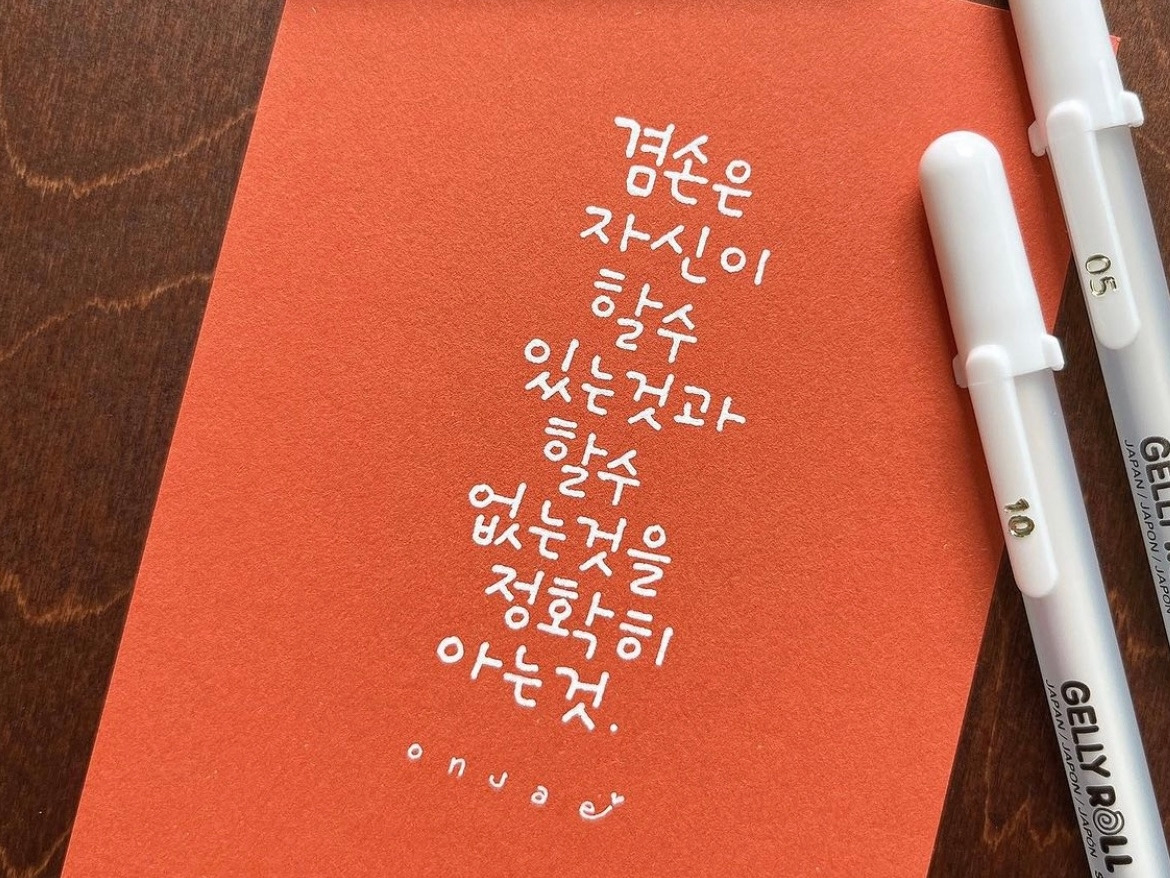 겸손은
자신이
할수
있는것과
할수
없는것을
정확히
아는것.
onuae
05
10
GELLY
JAPAN / JAPON / JAPÓN
GELLY ROLL
JAPAN / JAPON / JAPÓN